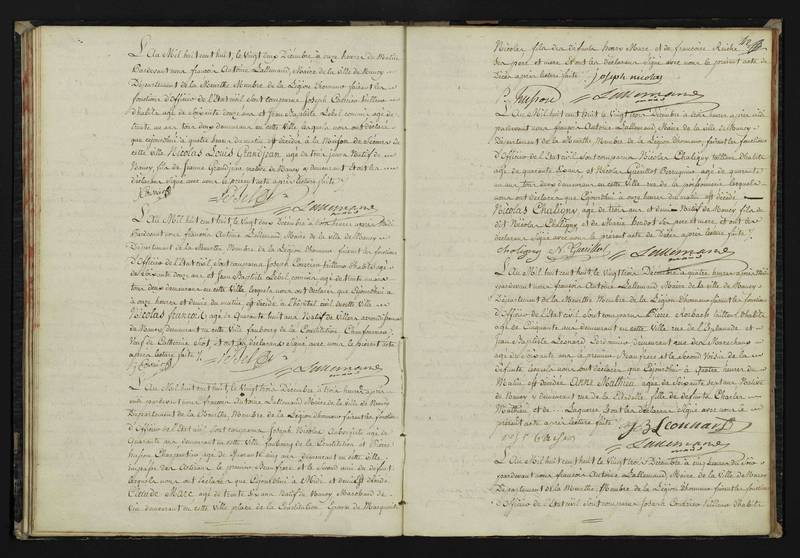 L'An Mil huit cent huit, le Vingt deux Décembre à onze heures du Matin
Pardevant nous françois Antoine Lallemand, Maire de la Ville de Nancy
Département de la Meurthe Membre de la Légion d'honneur faisant les
fonctions d'Officier de l'Etat civil sont comparus Joseph
d'habits agé de soixante douze ans et Jean Baptiste Lebel commis agé de
trente un ans tous deux demeurant en cette Ville lesquels nous ont déclaré
que cejourd'hui à quatre heures du matin est décédé à la Maison de Secours de
cette Ville Nicolas Louis Grandjean agé de trois jours Natif de
Nancy, fils de Jeanne Grandjean de Nancy et ont les
déclarans signé avec nous le présent acte après lecture faite
Lebel Lallemand
L'An Mil huit cent huit le Vingt deux Décembre à trois heures après Midi
Pardevant nous françois Antoine Lallemand Maire de la ville de Nancy
Département de la Meurthe Membre de la Légion d'honneur faisant les fonctions
d'Officier de l'Etat civil sont comparus Joseph tailleur d'habits agé
de soixante douze ans et Jean Baptiste Lebel commis agé de trente un ans
tous deux demeurant en cette Ville lesquels nous ont déclaré que Cejourd'hui
à onze heures et demie du matin est décédé à l'hôpital civil de cette Ville
Nicolas francois agé de Quarante huit ans Natif de Villers
de Nancy demeurant en cette Ville faubourg de la Constitution
Veuf de Catherine et ont les déclarans signé avec nous le présent acte
après lecture faite
Lebel Lallemand
L'An Mil huit cent huit le Vingt trois Décembre à trois heures après
midi pardevant nous françois Antoine Lallemand Maire de la ville de Nancy
Département de la Meurthe, Membre de la Légion d'honneur faisant les fonctions
d'Officier de l'Etat civil sont comparus Joseph Nicolas Aubergiste agé de
Quarante ans demeurant en cette Ville faubourg de la Constitution et Pierre
Husson Charpentier agé de Quarante cinq ans demeurant en cette Ville
le premier Beau frere et le second ami du défunt
lesquels nous ont déclaré que Cejourd'hui à Midi et demi est décédé
Claude Marc agé de trente six ans Natif de Nancy Marchand de
Vin demeurant en cette Ville place de la Constitution Epoux de Marguerite
Nicolas, fils des défunts henry Marc et de francoise
ses pere et mere et ont les déclarans signé avec nous le présent acte de
Décès après lecture faite Joseph nicolas
P. husson Lallemand
L'An Mil huit cent huit le Vingt trois Décembre à trois heures après midi
pardevant nous françois Antoine Lallemand Maire de la ville de Nancy
Département de la Meurthe Membre de la Légion d'honneur faisant les fonctions
d'Officier de l'Etat civil sont comparus Nicolas Chaligny tailleur d'habits
agé de quarante ans et Nicolas Gueillot Perruquier agé de quarante
ans tous deux demeurant en cette Ville rue de la lesquels
nous ont déclaré que Cejourd'hui à onze heures du matin est décédé
Nicolas Chaligny agé de trois ans et demi Natif de Nancy fils du
dit Nicolas Chaligny et de Marie ses pere et mere et ont les
déclarans signé avec nous le présent acte de Décès après lecture faite
Chaligny N Gueillot Lallemand
L'An Mil huit cent huit le Vingt trois Décembre à quatre heures après Midi
pardevant nous françois Antoine Lallemand Maire de la ville de Nancy
Département de la Meurthe Membre de la Légion d'honneur faisant les fonctions
d'Officier de l'Etat civil sont comparus Pierre tailleur d'habits
agé de Cinquante ans demeurant en cette Ville rue de l'Esplanade et
Jean Baptiste Léonard demeurant rue des Maréchaux
agé de soixante ans le premier Beau frere et le Second Voisin de la
défunte lesquels nous ont déclaré que Cejourd'hui à quatre heures du
Matin est décédée Anne Mathieu agée de soixante sept ans Native
de Nancy y demeurant rue de la Citadelle, fille de défunts Charles
Mathieu et de ... Laguerre et ont les déclarans signé avec nous le
présent acte après lecture faite J B Leonnard
Lallemand
L'An Mil huit cent huit le Vingt trois Décembre à cinq heures du Soir
pardevant nous françois Antoine Lallemand Maire de la Ville de Nancy
Département de la Meurthe, Membre de la Légion d'honneur faisant les fonctions
d'Officier de l'Etat civil sont comparus Joseph tailleur d'habits